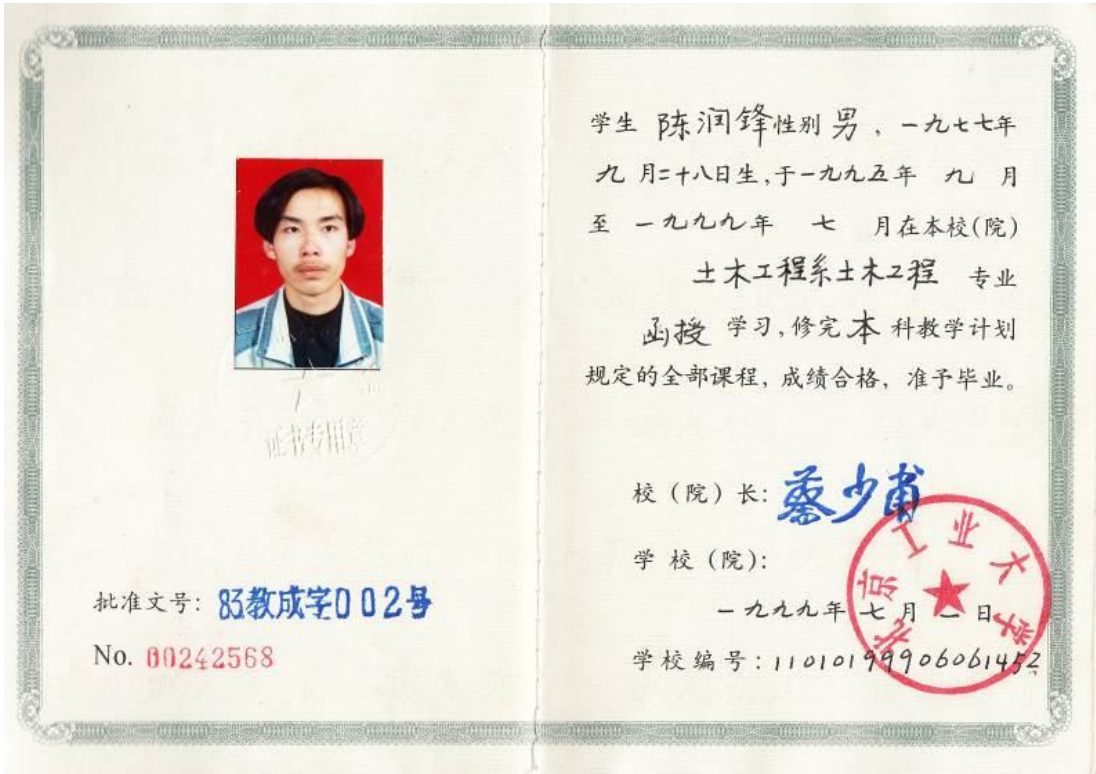 证书专用章
批准文号：83教成字002号
No. 00242568
学生 陈润锋性别 男，一九七七年
九月二十八日生,于一九九五年 九 月
至 一九九九年 七 月在本校(院)
土木工程系土木工程 专业
函授 学习,修完本科教学计划
规定的全部课程，成绩合格，准予毕业。
校（院）长：蔡少甫
学校（院）：
北京工业大学
一九九九年七月二日
学校编号：11010199906061452